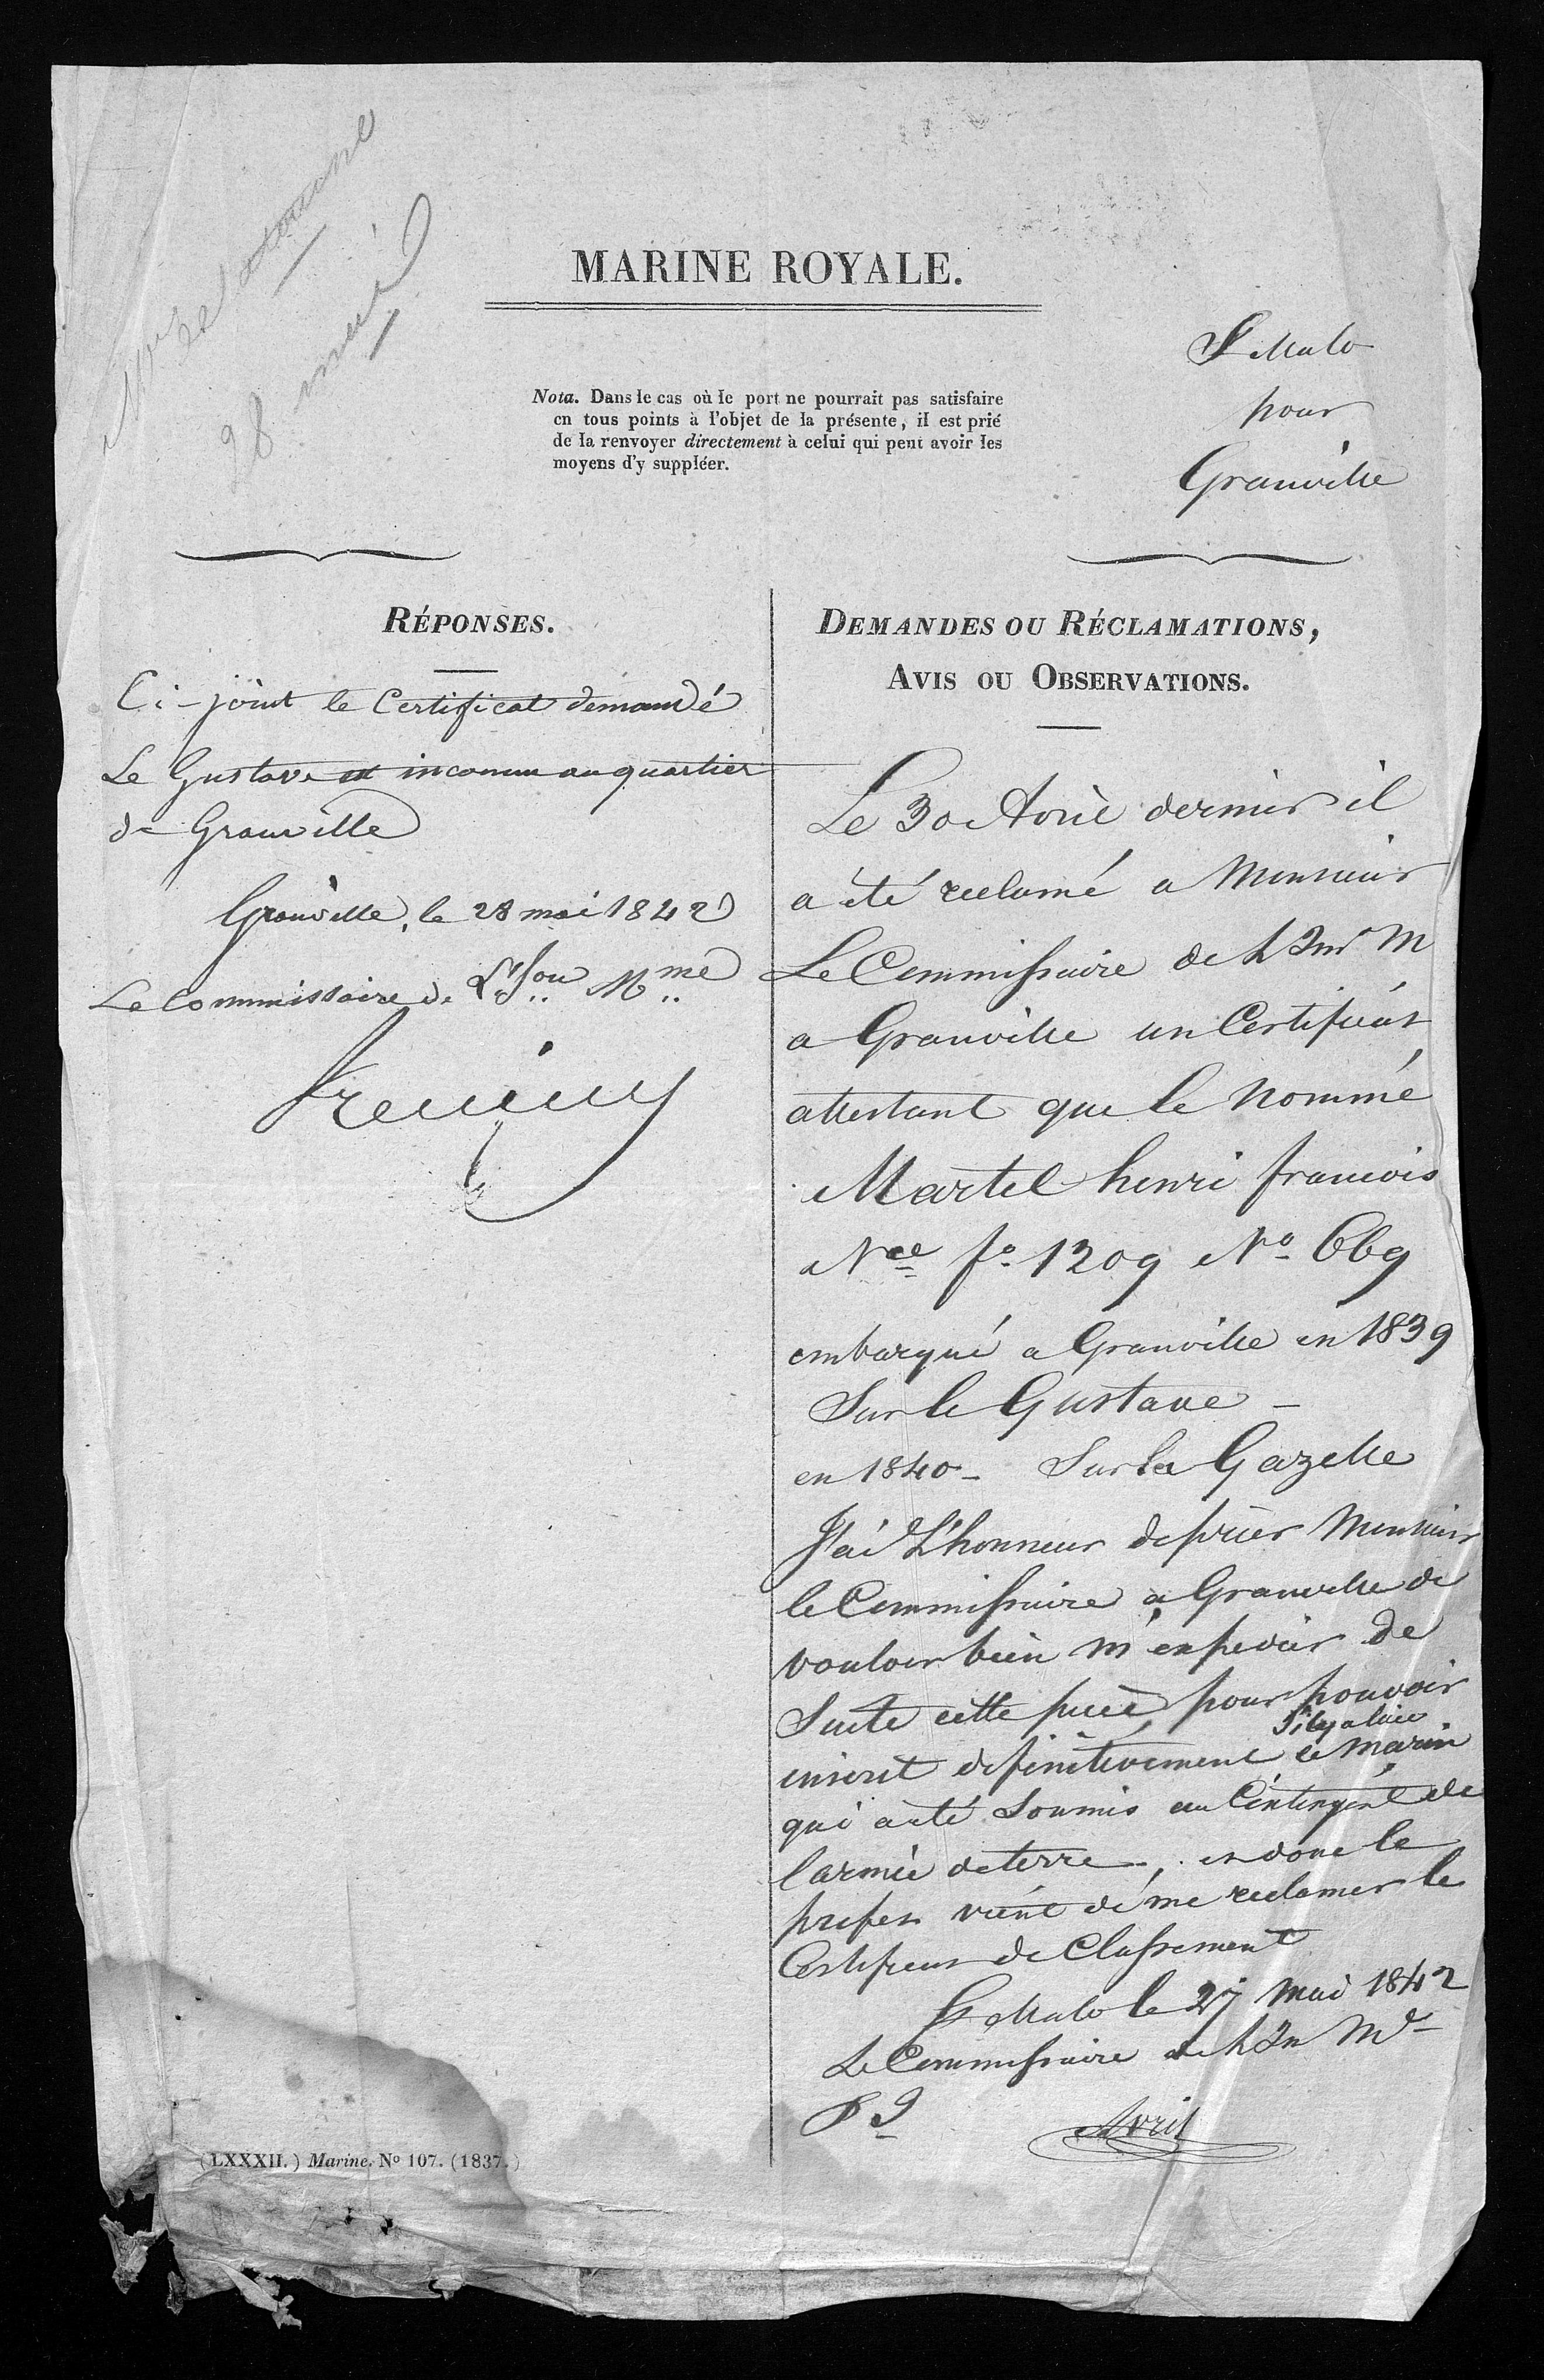 28 mai
MARINE ROYALE.
St Malo
pour
Granville
Nota. Dans le cas où le port ne pourrait pas satisfaire
en tous points à l'objet de la présente, il est prié
de la renvoyer directement à celui qui peut avoir les
moyens d'y suppléer.
RÉPONSES.
Ci-joint le Certificat demandé
Le Gustave est inconnu au quartier
de Granville
Granville, le 28 mai 1842
Le Commissaire de L'Ion Mme
DEMANDES OU RÉCLAMATIONS,
AVIS OU OBSERVATIONS.
Le 30 Avril dernier il
a été reclamé a Monsieur
Le Commissaire de L'Inson M
a Granville un Certificat
attestant que le Nommé
Martel henri francois
Nce fo 1209 No 669
embarqué a Granville en 1839
Sur le Gustave -
en 1840 - Sur la Gazelle
J'ai L'honneur de prier Monsieur
le Commissaire a Granville de
vouloir bien m'expedier de
Suite cette piece, pour pouvoir
S'il y a lieu
inscrit definitivement ce marin
qui a été Soumis au Contingent de
l'armée de terre, et dont le
prefet vient de me reclamer le
Certificat de Classement
St Malo le 27 Mai 1842
Le Commissaire de L'In Me
Avril
(LXXXII.) Marine. No 107. (1837.)